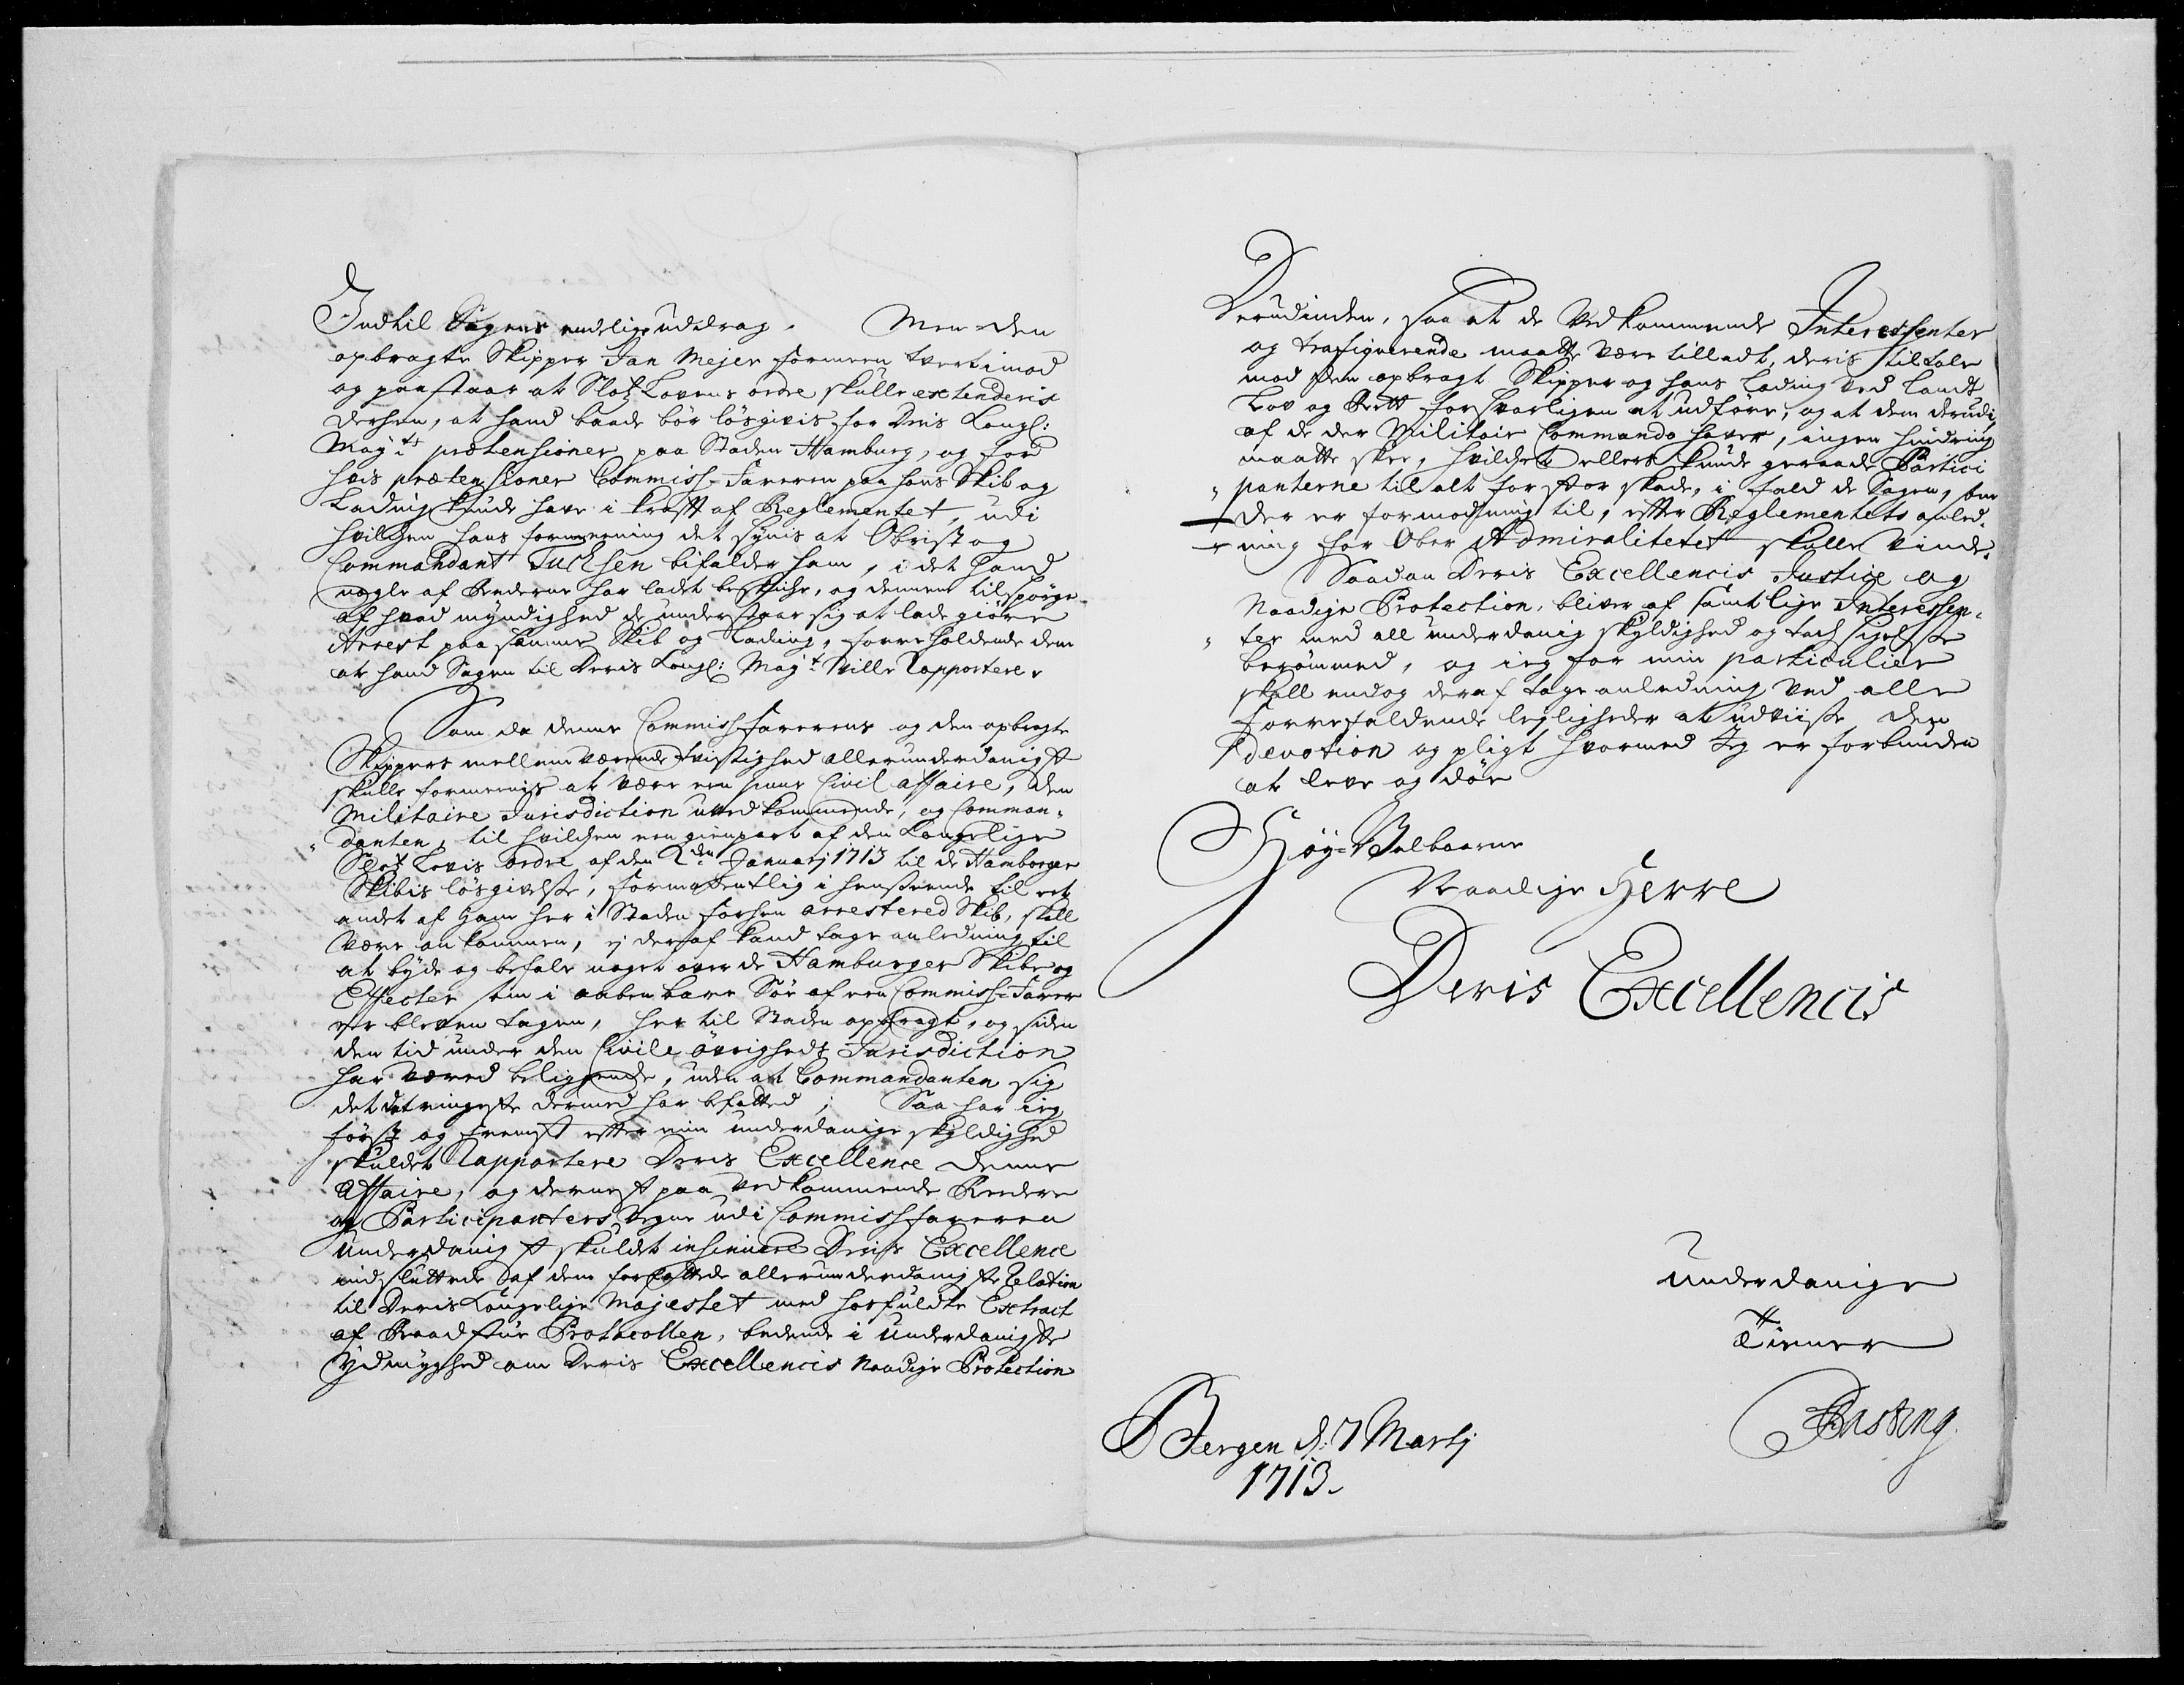 Indtil Sagens endelige uddrag. Men den
opbragte Skipper Jan Mejer formeen tvertimod
og paastaar at Slotz Lovens ordre skulle extenderis
derhen, at hand baade bör lösgivis for Deris Kongl:
Mayts prætensioner paa Staden Hamburg, og for
hvis prætensioner Commiss-Fareren paa hans Skib og
Ladning kunde have i krafft af Reglementet, udi
hvilchen hans formeening det synis at Obrist og
Commandant bifalder ham, i det hand
nogle af Rederne har ladet beskiche, og dennem tilspörge
af hvad myndighed de understaar sig at lade giöre
Arrest paa samme Skib og Lading, forreholdende dem
at hand Sagen til Deris Kongl: Mayt ville Rapportere.
Som da denne Commissfarerens og den opbragte
Skippers mellemværende tvistighed allerunderdanigst
skulle formeenis at være een puur Civil affaire, den
Militaire Jurisdiction uvedkommende, og Comman-
danten, til hvilchen een gienpart af den Kongelige
Slotz Lovis ordre af den 2den Januarj 1713 til de Hamborger
Skibis lösgivelse, formodentlig i henseende til eet
andet af ham her i Staden forhen arrestered Skib, skall
være ankommen, ej deraf kand tage anledning til
at byde og befale noget over de Hamburger Skibe og
Effecter som i aabenbare Söe af een Commiss-Farer
er bleven tagen, her til Staden opbragt, og siden
den tid under den Civile övrigheds Jurisdiction
har væred beliggende, uden at Commandanten sig
det det ringeste dermed har befatted; Saa har ieg
först og fremst efter min underdanige skyldighed
skuldet Rapportere Deris Excellence denne
Affaire, og dernest paa vedkommende Reedere
og Participanters vegne udi Commissfareren
underdanigst skuldet insinuere Deris Excellence
indsluttede af dem forfattede allerunderdanigste Relation
til Deris Kongelige Majestet med hosfuldte Extract
af Raadstue Prothcollen, bedende i underdanigste
ydmyghed om Deris Excellencis Naadige Protection
Derudinden, saa at de vedkommende Interessenter
og trafiquerende maatte være tilladt, deris tiltale
mod den opbragt Skipper og hans Lading ved Lands
Lov og Rett forsvarligen at udföre, og at dem derudi,
af de der Militair Commando haver, ingen hindring
maatte skee, hvilchet ellers kunde geraade Partici
panterne til alt for stor skade, i fald de Sagen, som
der er formodning til, effter Reglementets anled-
ning for Ober Admiralitetet skulle vinde.
Saadan Deris Excellencis Justice og
Naadige Protection, bliver af samtlige Interessen-
ter med all underdanig skyldighed og tachsigelse
berömmed, og ieg for min particulier
skall endog deraf tage anledning ved alle
forrefaldende leyligheder at udviise den
devotion og pligt hvormed Jeg er forbunden
at leve og döe
Höy-Velbaarne
Naadige Herre
Deris Excellencis
underdanige
Tiener
Bergen d. 7 Martij
1713.